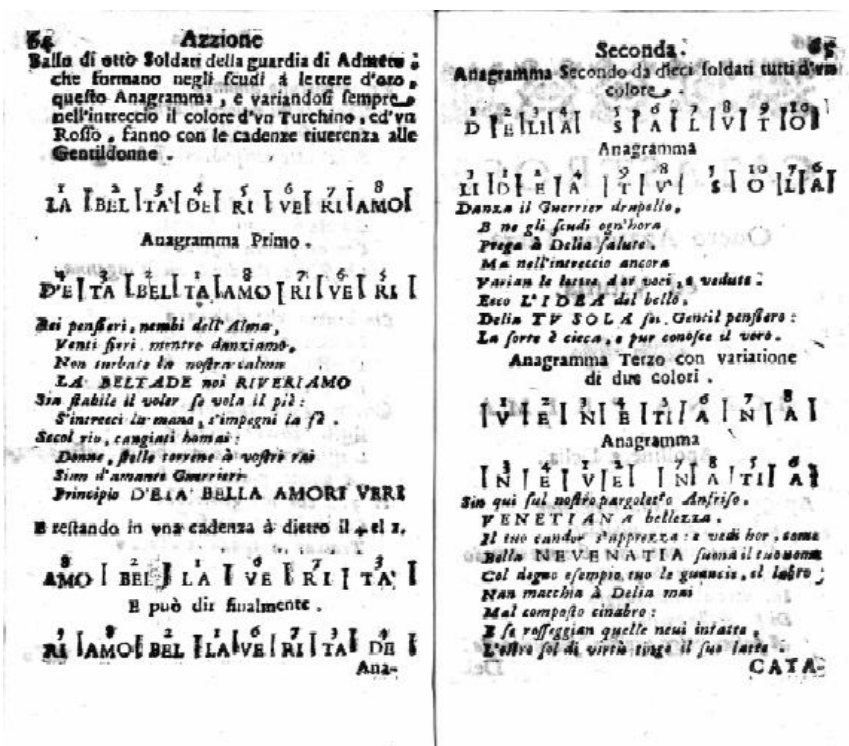 64 Azzione
Ballo di otto Soldati della guardia di Admeto ;
che formano negli scudi à lettere d'oro,
questo Anagramma, e variandosi sempre
nell'intreccio il colore d'vn Turchino, ed'vn
Rosso, fanno con le cadenze riuerenza alle
Gentildonne.
1 2 3 4 5 6 7 8
LA BEL TA' DE RI VE RI AMO
Anagramma Primo.
4 3 2 1 8 7 6 5
D'E TA BEL LA AMO RI VE RI
Rei pensieri, nembi dell'Alma,
Venti fieri mentre danziamo,
Non turbate la nostra calma
LA BELTADE noi RIVERIAMO
Sia stabile il voler se vola il piè:
S'intrecci la mano, s'impegni la fè.
Secol rio, cangiati homai:
Donne, stelle terrene à vostri rai
Sian d'amanti Guerrieri
Principio D'ETA' BELLA AMORI VERI
E restando in vna cadenza à dietro il 4 el 5,
8 2 1 6 7 3
AMO BEL LA VE RI TA'
E può dir finalmente.
5 8 2 1 6 7 3 4
RI AMO BEL LA VE RI TA DE
Ana-
Seconda. 65
Anagramma Secondo da dieci soldati tutti d'vn
colore.
1 2 3 4 5 6 7 8 9 10
D E LI A S A L V T O
Anagramma
3 1 2 4 9 8 5 10 7 6
LI D E A T V' S O L A
Danza il Guerrier drapello,
E ne gli scudi ogn'hora
Prega à Delia salute.
Ma nell'intreccio ancora
Varian le lettre d'or voci, e vedute:
Ecco L'IDEA del bello,
Delia TV SOLA sei. Gentil pensiero:
La sorte è cieca, e pur conosce il vero.
Anagramma Terzo con variatione
di due colori.
1 2 3 4 5 6 7 8
V E N E TI A N A
Anagramma
3 4 1 2 7 8 5 6
N E V E N A TI A
Sin qui sul nostro pargoletto Anfriso.
VENETIANA bellezza.
Il tuo candor s'apprezza: e vedi hor, come
Bella NEVENATIA suona il tuo nome
Col degno esempio tuo le guancie, el labro;
Non macchia à Delia mai
Mal composto cinabro:
E se rosseggian quelle neui intatte,
L'ostro sol di virtù tinge il suo latte.
CATA-